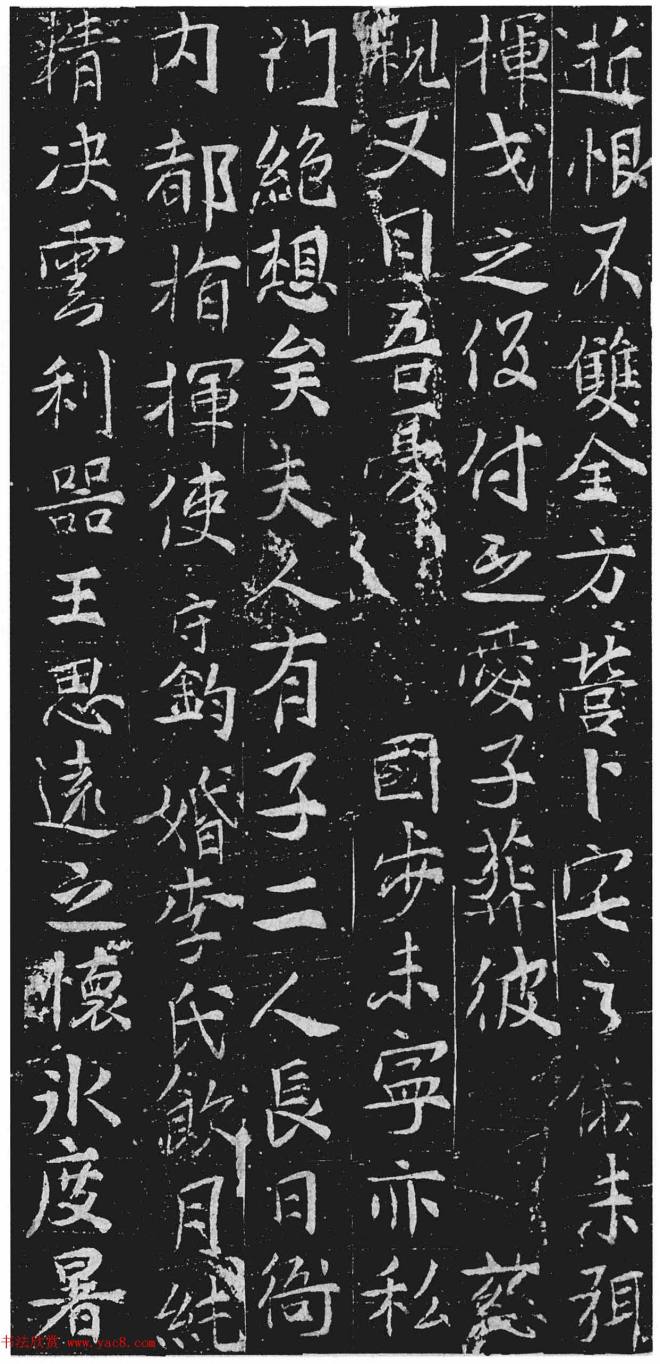 逝恨不雙全方營卜宅之儀未弭
揮戈之役付之愛子葬彼 慈
親又日吾憂 國步未寧亦私
門絕想矣夫人有子二人長曰衙
內都指揮使守鈞婚李氏飲月純
精决雲利噐王思遠之懷氷度暑
书法欣赏 www.yac8.com